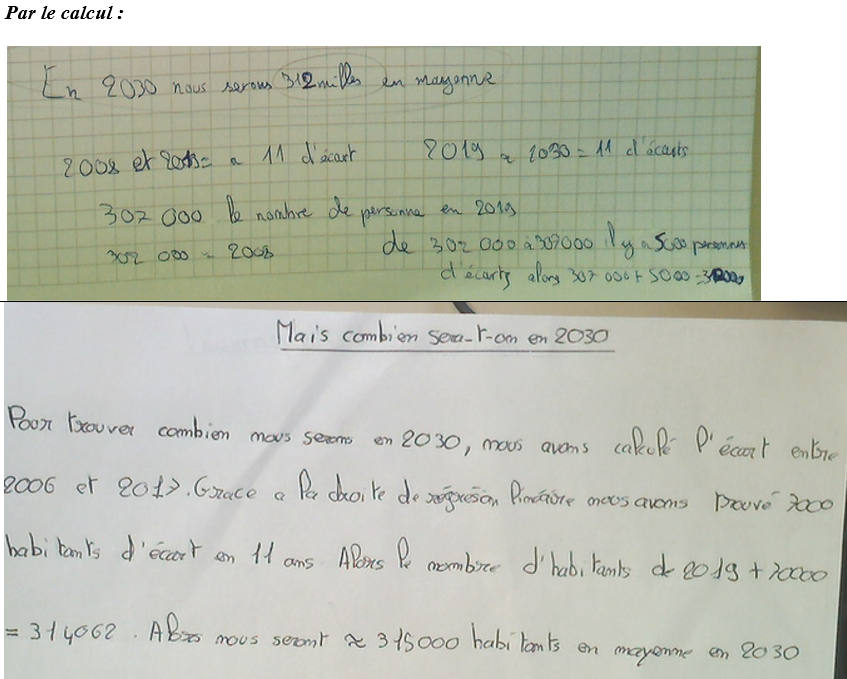 Par le calcul :
En 2030 nous serons 312 milles en mayenne
2008 et 2019= a 11 d'écart 2019 a 2030 = 11 d'écarts
307 000 le nombre de personne en 2019
302 000 = 2008 de 302 000 à 307000 il y a 5000 personnes
d'écarts alors 307 000 + 5000 =
Mais combien sera-t-on en 2030
Pour trouver combien nous serons en 2030, nous avons calculé l'écart entre
2006 et 2017. Grace a la droite de linéaire nous avons trouvé 7000
habitants d'écart en 11 ans Alors le nombre d'habitants de 2019 +
= 314062. Alors nous seront ≈ 315000 habitants en mayenne en 2030